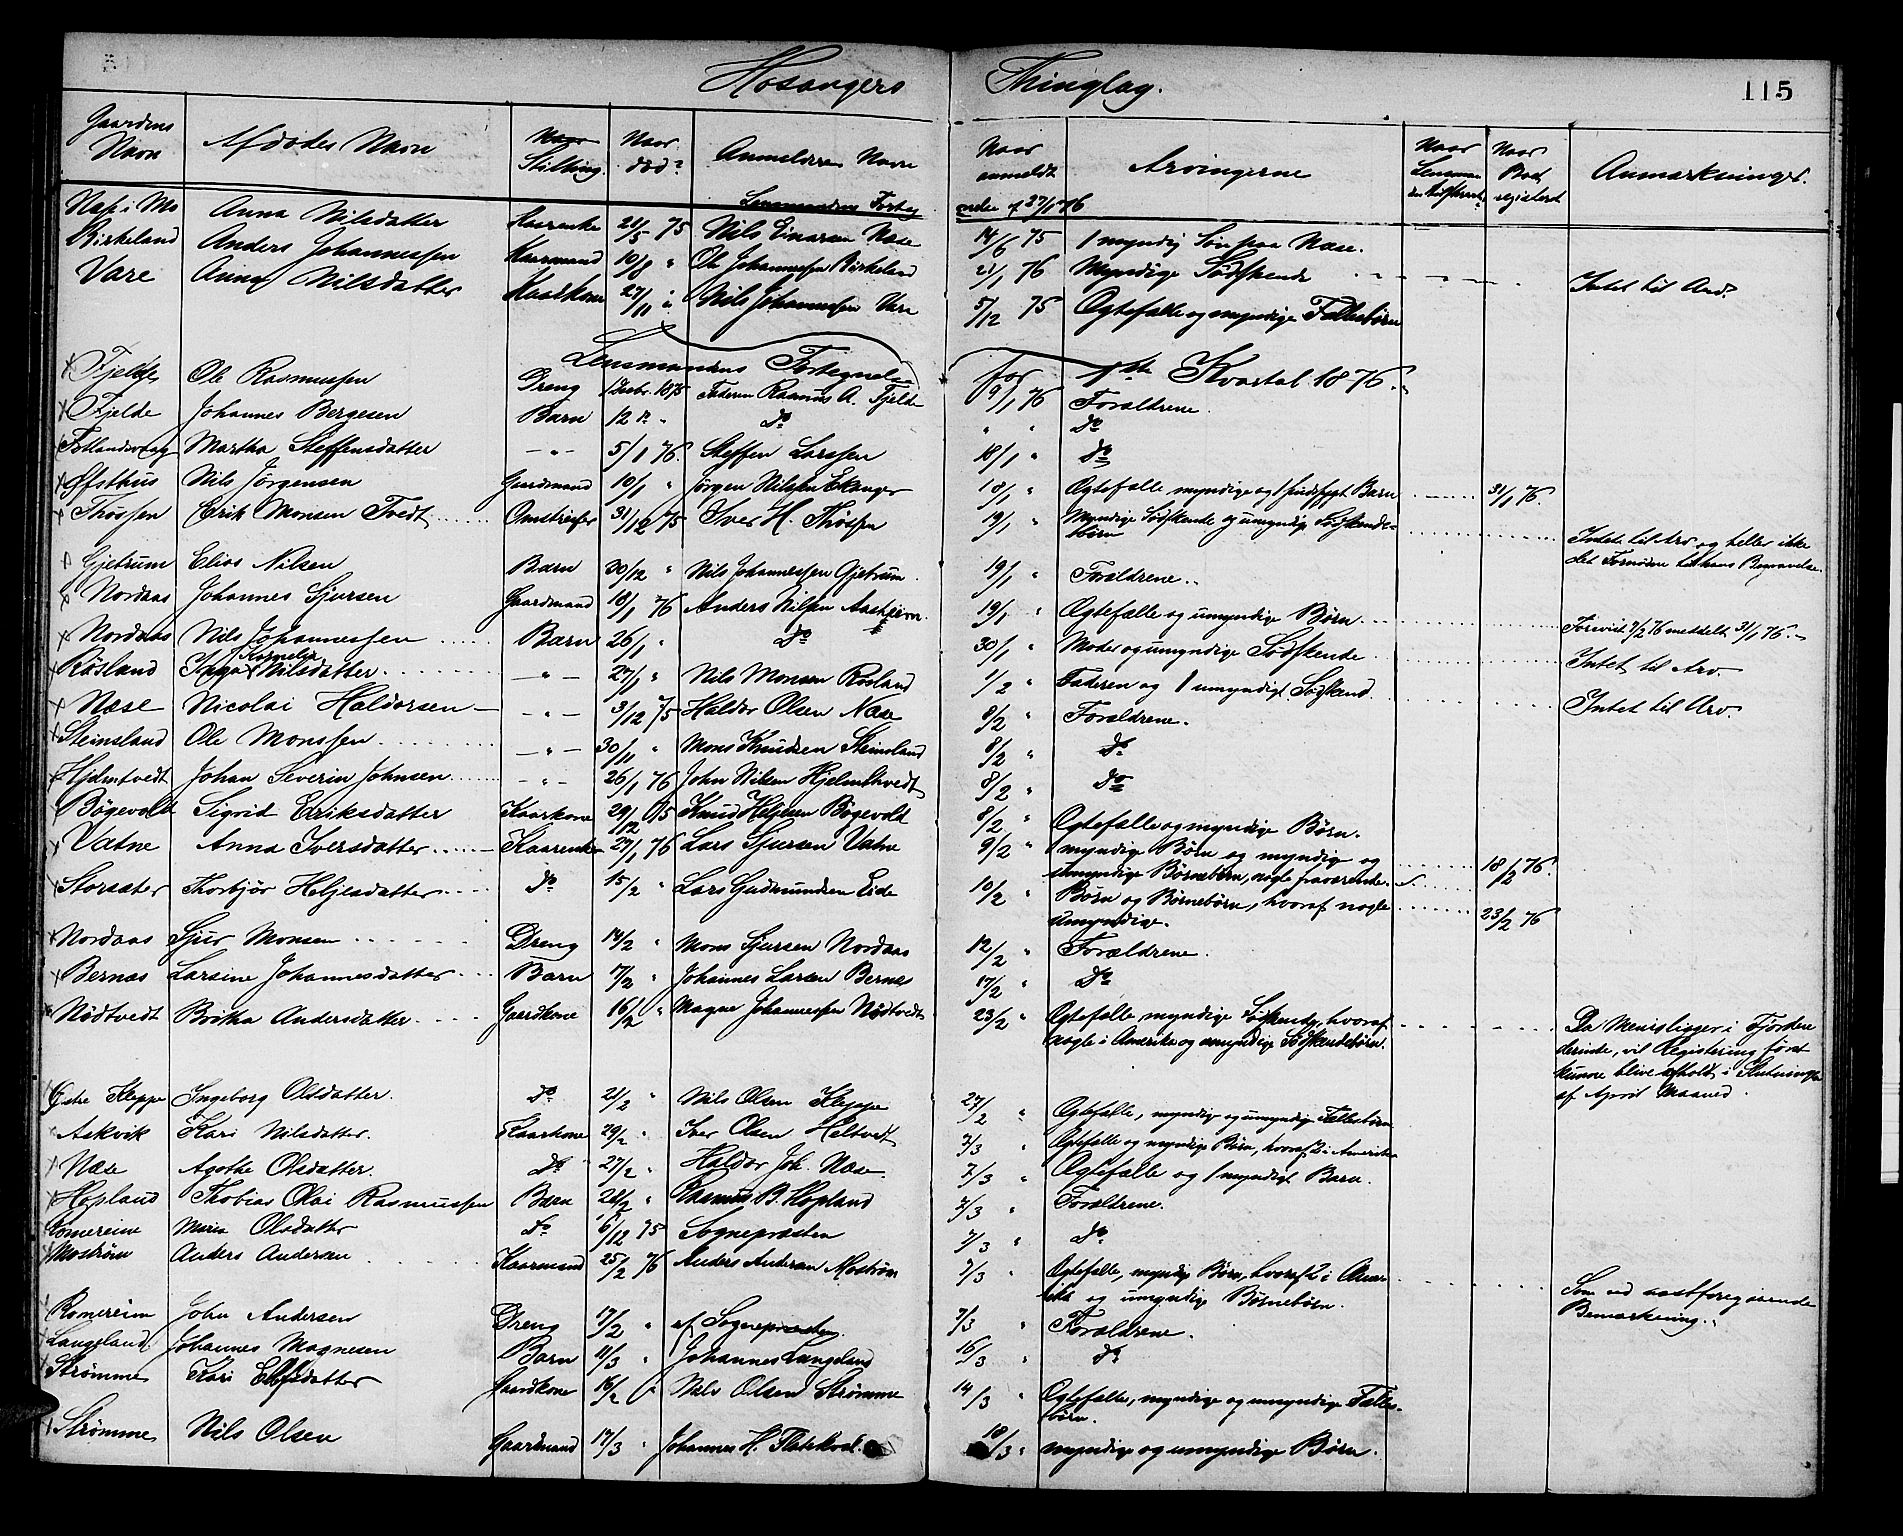 Hosangers Thinglag. 115
Gaardens Navn | Afdødes Navn | Stilling | Naar død | Anmelderens Navn | Naar anmeldt | Arvingerne | Naar | Naar Boet registert | Anmærkninger.
Lensmandens Forteg nelse af 27/1 76
Næse i Mo | Anna Nilsdatter | Kaarenke | 21/5 75 | Nils Einarsen Næse | 14/6 75 | 1 myndig Søn paa Næse.
Birkeland | Anders Johannessen | Kaarmand | 10/8 " | Ole Johannessen Birkeland | 21/1 76 | Myndige Sødskende | Intet til Arv.
Vare | Anna Nilsdatter | Kaarkone | 27/11 " | Nils Johannessen Vare | 5/12 75 | Ægtefælle og myndige Fællesbørn
Lensmandens Fortegnelse for 1ste Kvartal 1876.
Fjelde | Ole Rasmussen | Dreng | 1 Decbr. 1875 | Faderen Rasmus A. Fjelde | 9/1 76 | Forældrene.
Fjelde | Johannes Bergesen | Barn | 12 " " | do | " " | do
Fotlandsvaag | Martha Steffensdatter | - " - | 5/1 76. | Steffen Larssen | 18/1 " | do
Øfsthus | Nils Jørgensen | Gaardmand | 10/1 " | Jørgen Nilssen Ekanger | 18/1 " | Ægtefælle myndige og 1 sindssygt Barn | 31/1 76.
Thøssen | Erik Monsen Tvedt | Omstreifer | 31/12 75 | Iver H. Thøssen | 19/1 " | Myndige Sødskende og umyndig Sødskende-
børn | Intet til Arv og heller ikke
det Fornødne til hans Begravelse.
Gjetrum | Elias Nilsen | Barn | 30/12 " | Nils Johannessen Gjetrum. | 19/1 " | Forældrene.
Nordaas | Johannes Sjursen | Gaardmand | 18/1 76 | Anders Nilsen Aasheim | 19/1 " | Ægtefælle og umyndige Børn | Forevist 7/2 76 meddelt 31/1 76.
Nordaas | Nils Johannessen | Barn | 26/1 " | do | 30/1 " | Moder og umyndige Sødskende | Intet til Arv.
Røsland | Inga Kornelia Nilsdatter | - " - | 27/1 " | Nils Monsen Røsland | 1/2 " | Faderen og 1 umyndigt Sødskend. | Intet til Arv.
Næse | Nicolai Haldorsen | - " - | 3/12 75 | Haldor Olsen Næse | 8/2 " | Forældrene.
Steinsland | Ole Monssen | - " - | 30/11 " | Mons Knudsen Steinsland | 8/2 " | do
Hjelmtvedt | Johan Severin Johnsen | - " - | 26/1 76 | John Nilsen Hjelmtvedt | 8/2 " | do
Bøgevold | Sigrid Eriksdatter | Kaarkone | 29/12 75 | Knud Helgesen Bøgevold | 8/2 " | Ægtefælle og myndige Børn.
Vatne | Anna Iversdatter | Kaarenke | 27/1 76 | Lars Sjursen Vatne | 9/2 " | myndige Børn og myndige og
umyndige Børnebørn, nogle fraværende. | 18/2 76.
Storsæter | Thorbjør Helgesdatter | do | 15/2 " | Lars Gudmundsen Eide | 10/2 " | Børn og Børnebørn, hvoraf nogle
umyndige. | 23/2 76
Nordaas | Sjur Monsen | Dreng | 14/2 " | Mons Sjursen Nordaas | 12/2 " | Forældrene.
Bernæs | Larsine Johannesdatter | Barn | 7/2 " | Johannes Larsen Bernes | 17/2 " | do
Nødtvedt | Brita Andersdatter | Gaardkone | 16/2 " | Magne Johannessen Nødtvedt | 23/2 " | Ægtefælle myndige Sødskende, hvoraf
nogle i Amerika og umyndige Sødskendebørn. | Da Menis ligger i Fjordene
derinde, vil Registering først
kunne blive afholdt i Slutningen
af April Maaned.
Østre Kleppe | Ingeborg Olsdatter. | do | 21/2 " | Nils Olsen Kleppe | 27/2 " | Ægtefælle, myndig og umyndig Fællesbørn
Askvik | Kari Nilsdatter. | Kaarkone | 29/2 " | Iver Olsen Heltvedt | 3/3 " | Ægtefælle og myndige Børn, hvoraf 2 i Amerika
Næse | Agathe Olsdatter | do | 27/2 " | Haldor Joh. Næse | 7/3 " | Ægtefælle og 1 myndigt Barn.
Hopland | Thobias Olai Rasmussen | Barn | 28/2 " | Rasmus B. Hopland | 7/3 " | Forældrene.
Romereim | Maria Olsdatter | do | 6/12 75 | Sognepræsten | 7/3 " | do
Mostrøm | Anders Andersen | Kaarmand | 25/2 76 | Anders Andersen Mostrøm | 7/3 " | Ægtefælle, myndig Børn, hvoraf 2 i Ame-
rika og umyndige Børnebørn. | Som ved næstforegaaende
Bemærkning.
Romereim | John Andersen | Dreng | 17/2 " | af Sognepræsten. | 7/3 " | Forældrene.
Langeland | Johannes Magnesen | Barn | 11/3 " | Johannes Langeland | 16/3 " | do
Strømme | Kari Elefsdatter | Gaardkone | 16/2 " | Nils Olsen Strømme | 14/3 " | Ægtefælle, myndige og umyndige Fælles-
børn.
Strømme | Nils Olsen | Gaardmand | 17/3 " | Johannes H. Flatekval | 18/3 " | myndige og umyndige Børn.